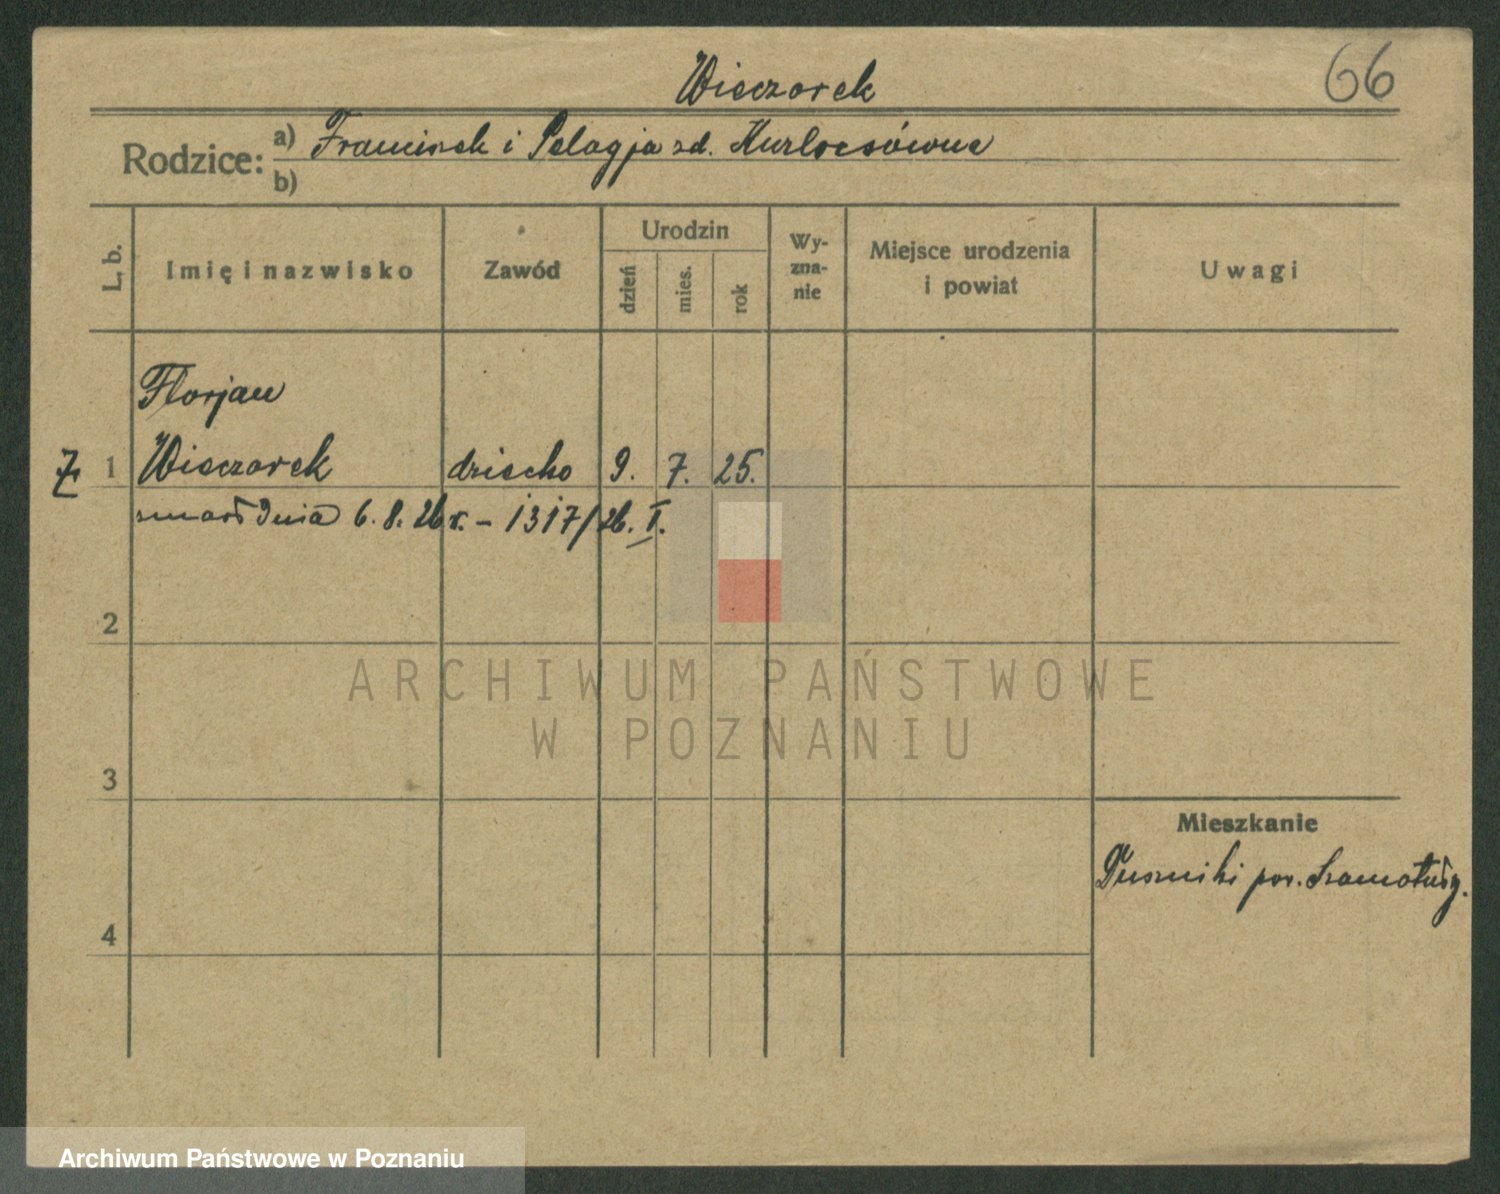 Wieczorek
66
Rodzice: a) Franciszek i Pelagja zd.
b)
L. b. Imię i nazwisko Zawód Urodzin dzień mies. rok Wyznanie Miejsce urodzenia i powiat Uwagi
Florjan
Ż 1 Wieczorek dziecko 9. 7. 25.
zmarł dnia 6. 8. 26 r. – 1317/26. I.
2
ARCHIWUM PAŃSTWOWE
W POZNANIU
3
Mieszkanie
Duszniki pow. Szamotuły.
4
Archiwum Państwowe w Poznaniu